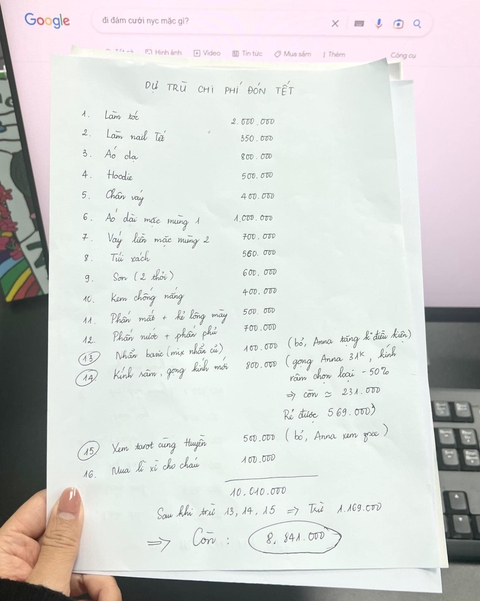 Google
đi đám cưới nyc mặc gì?
Hình ảnh Video Tin tức Mua sắm Thêm Công cụ
DỰ TRÙ CHI PHÍ ĐÓN TẾT
1. Làm tóc 2.000.000
2. Làm nail Tết 350.000
3. Áo da 800.000
4. Hoodie 500.000
5. Chân váy 400.000
6. Áo dài mặc mùng 1 1.000.000
7. Váy liền mặc mùng 2 700.000
8. Túi xách 560.000
9. Son (2 thỏi) 600.000
10. Kem chống nắng 400.000
11. Phấn mắt + kẻ lông mày 500.000
12. Phấn nước + phấn phủ 700.000
13 Nhẫn basic (mix nhẫn cũ) 100.000 (bỏ, Anna tặng kđiều kiện)
14 Kính râm, gọng kính mới 800.000 (gọng Anna 31k, kính
râm chọn loại -50%
⇒ còn ≃ 231.000
Rẻ được 569.000)
15 Xem tarot cùng Huyền 500.000 (bỏ, Anna xem free)
16. Mua lì xì cho cháu 100.000
10.010.000
Sau khi trừ 13, 14, 15 ⇒ Trừ 1.169.000
⇒ Còn : 8.841.000